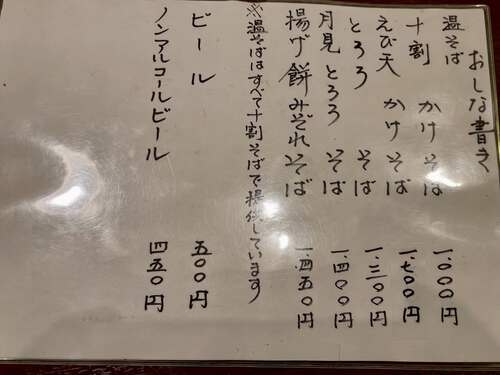 おしな書き
温そば
十割 かけそば 一、〇〇〇円
えび天 かけそば 一、七〇〇円
とろろ そば 一、三〇〇円
月見とろろ そば 一、四〇〇円
揚げ餅みぞれそば 一、四五〇円
※温そばはすべて十割そばで提供しています
ビール 五〇〇円
ノンアルコールビール 四五〇円